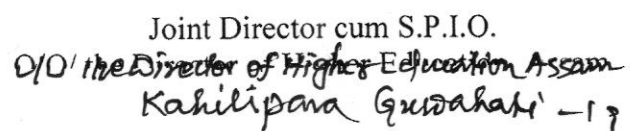 Joint Director cum S.P.I.O.
O/O the Director of Higher Education Assam
Kahilipara Guwahati -19